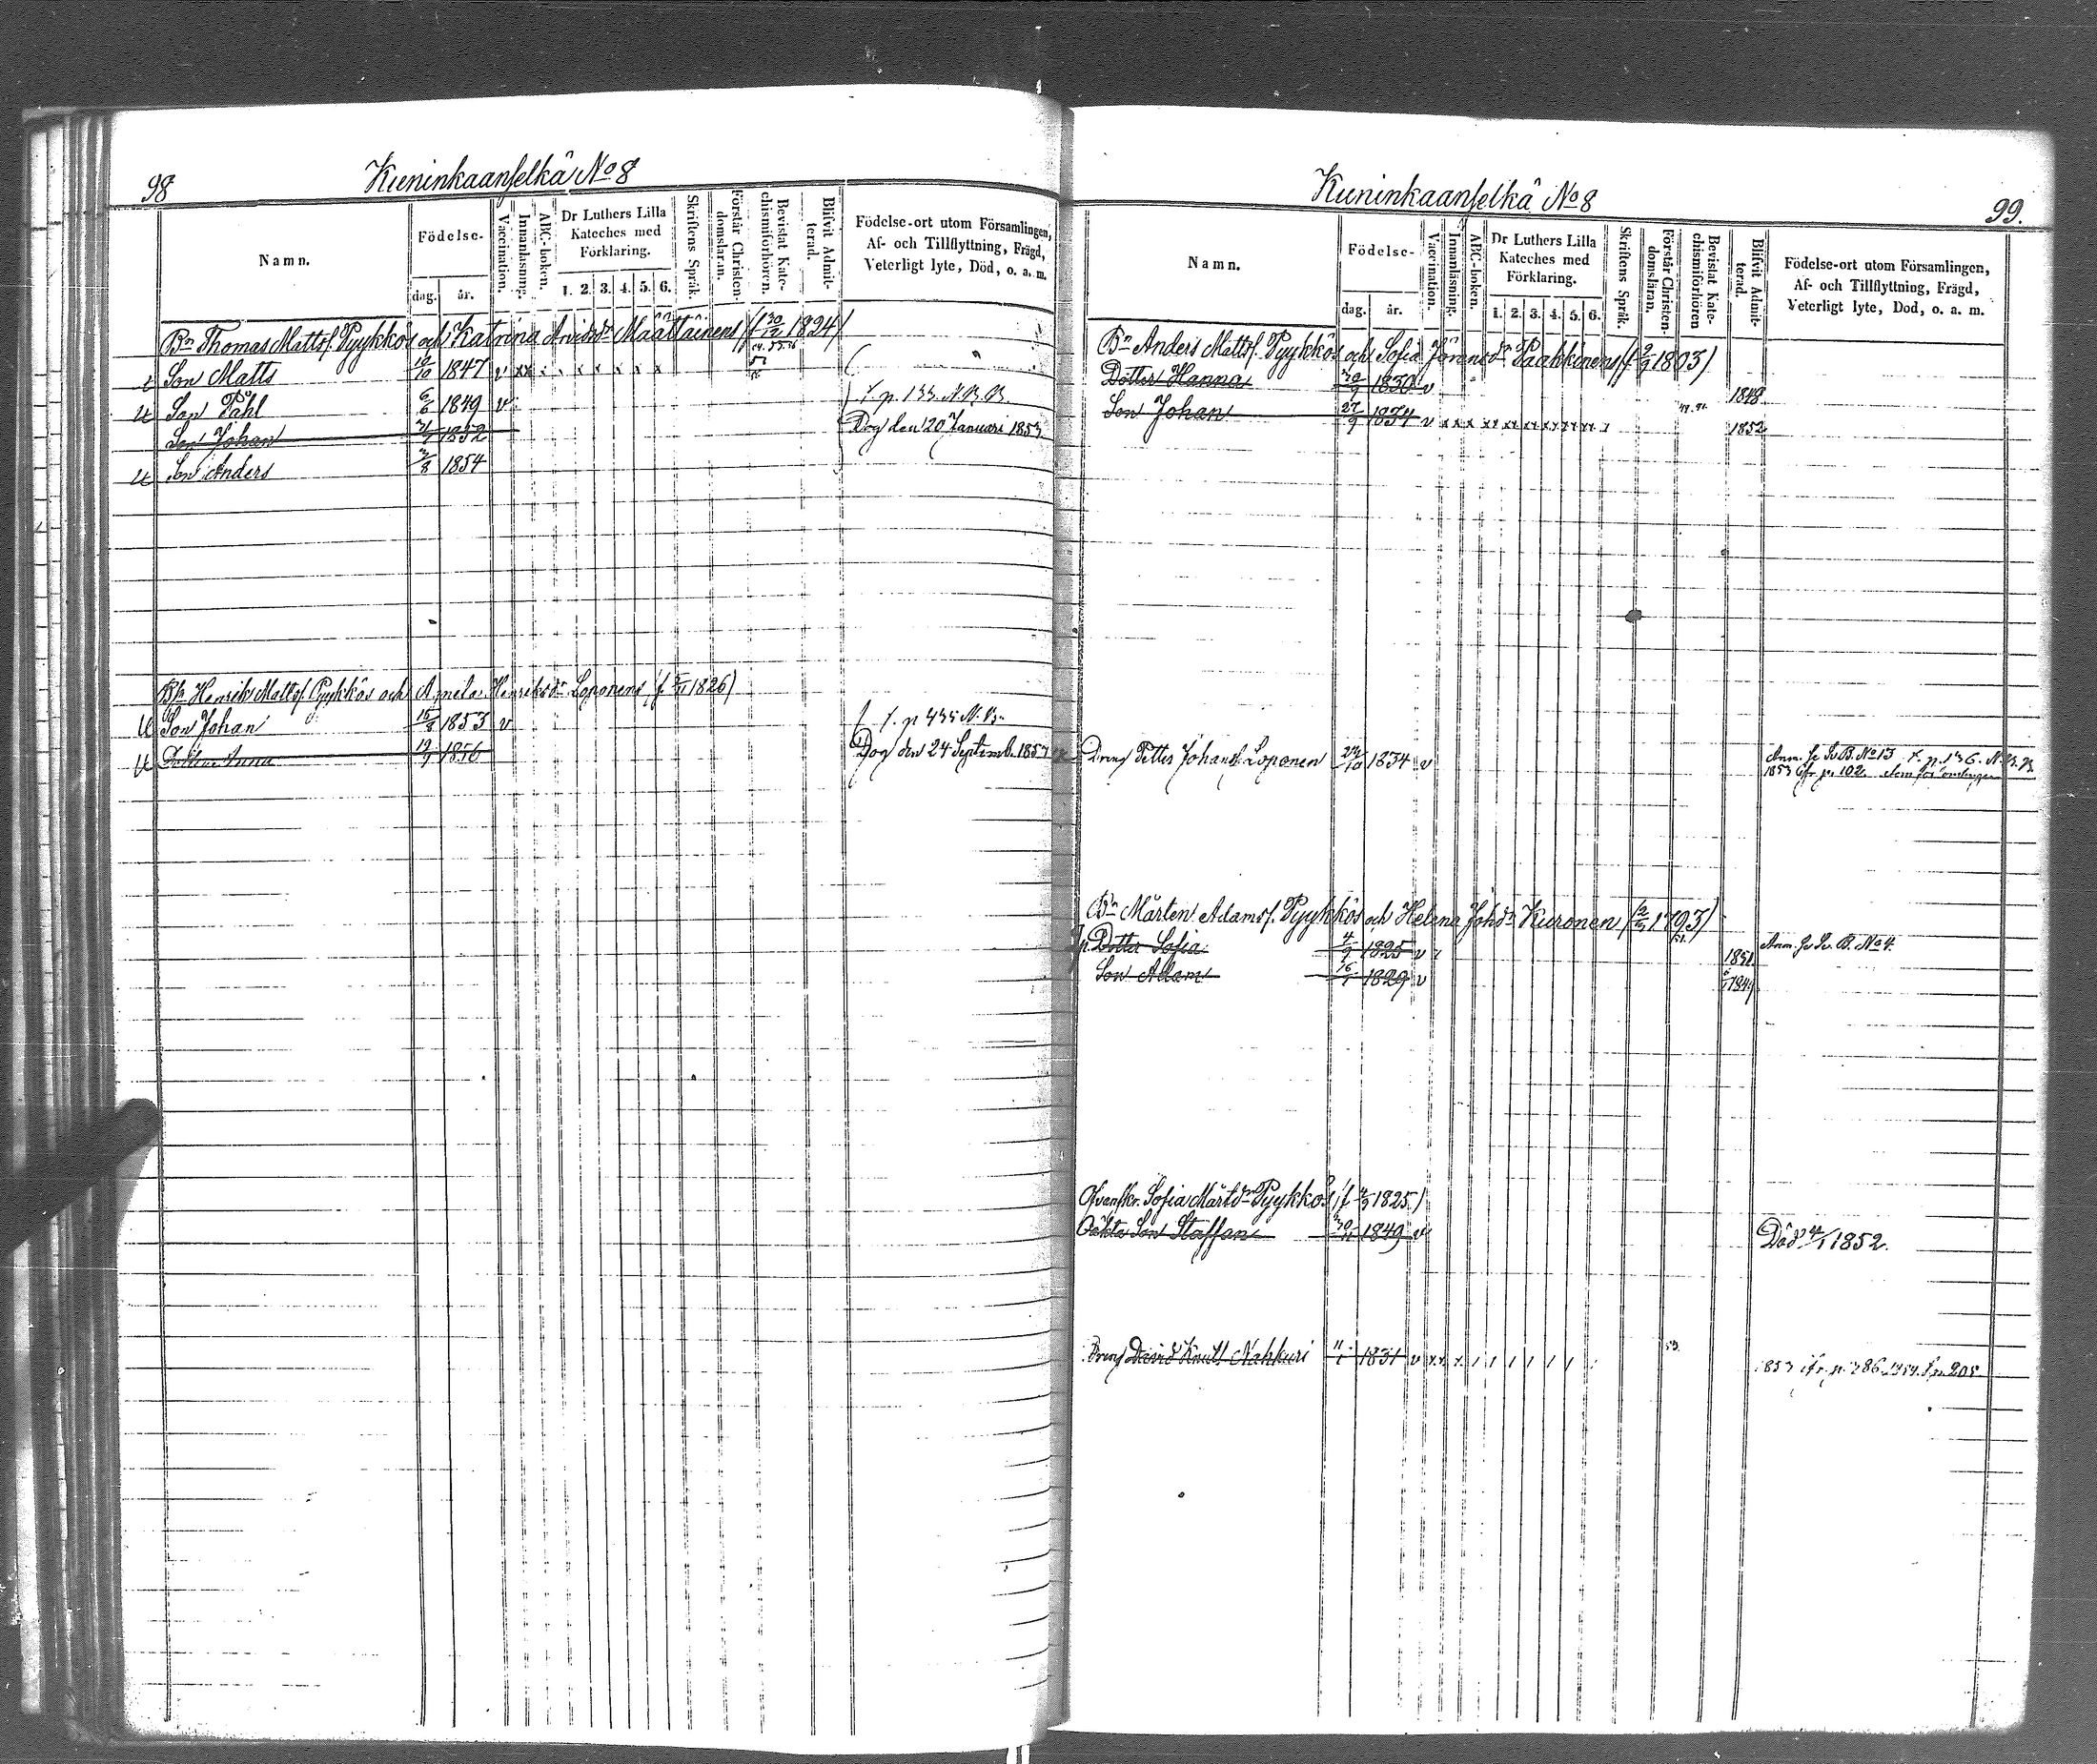 98
Kuninkaanselkä No 8
Namn.
Födelse-
dag.
år.
Vaccination.
Innanläsning.
ABC-boken.
Dr Luthers Lilla
Kateches med
Förklaring.
1. 2. 3. 4. 5. 6.
Skriftens Språk.
Förstår Christen-
domslär.m.
Bevistat Kate-
chismiförhören.
Blifvit Admit-
terad.
Födelse-ort utom Församlingen,
Af- och Tillflyttning, Frägd,
Veterligt lyte, Död, o. a. m.
Bn Thomas Mattss. Pyykkös och Katrina Arvidsdr Määttäinens (f 30/12 1824)
Son Matts 10/10 1847 v
Son Påhl 6/6 1849 v f. p. 133. N.B.B.
Son Johan 1852 Dog den 20 Januari 1853
Son Anders 3/8 1854
Bn Henrik Mattss. Pyykkös och Amelia Henriksdr Loponens (f 1826)
Son Johan 1853 v f. p 435 N.B.
Dotter Anna 1856 Dog den 24 Septemb. 1857
Kuninkaanselkä No 8
99.
Namn.
Födelse-
dag.
år.
Vaccination.
Innanläsning.
ABC-boken.
Dr Luthers Lilla
Kateches med
Förklaring.
1. 2. 3. 4. 5. 6.
Skriftens Språk.
Förstår Christen-
domsläran.
Bevistat Kate-
chismiförhören
Blifvit Admit-
terad.
Födelse-ort utom Församlingen,
Af- och Tillflyttning, Frägd,
Veterligt lyte, Dod, o. a. m.
Bn Anders Mattss. Pyykkös och Sofia Jöransdr Paakkinens (f 1803)
Dotter Hanna 1830 v 1848
Son Johan 27/9 1834 v 1852
Dreng Petter Johanss. Loponen 1834 v
1853 fr. p. 102.
Bn Mårten Adamss. Pyykkös och Helena Johsdr Kuronen 1793)
Dotter Sofia 4/9 1825 v 1851 Anm. Se Sv. B. No 4.
Son Adam 16/1 1829 v 1849
Ofvanskr. Sofia Märtdr Pyykkös (f 1825)
Oäkta Son Staffan 1849 v Död 4/1 1852.
Dreng David Knutl Nahkuri 11/1 1831 v 53. 1853 ifr. p. 286. 1854. f. p. 205.